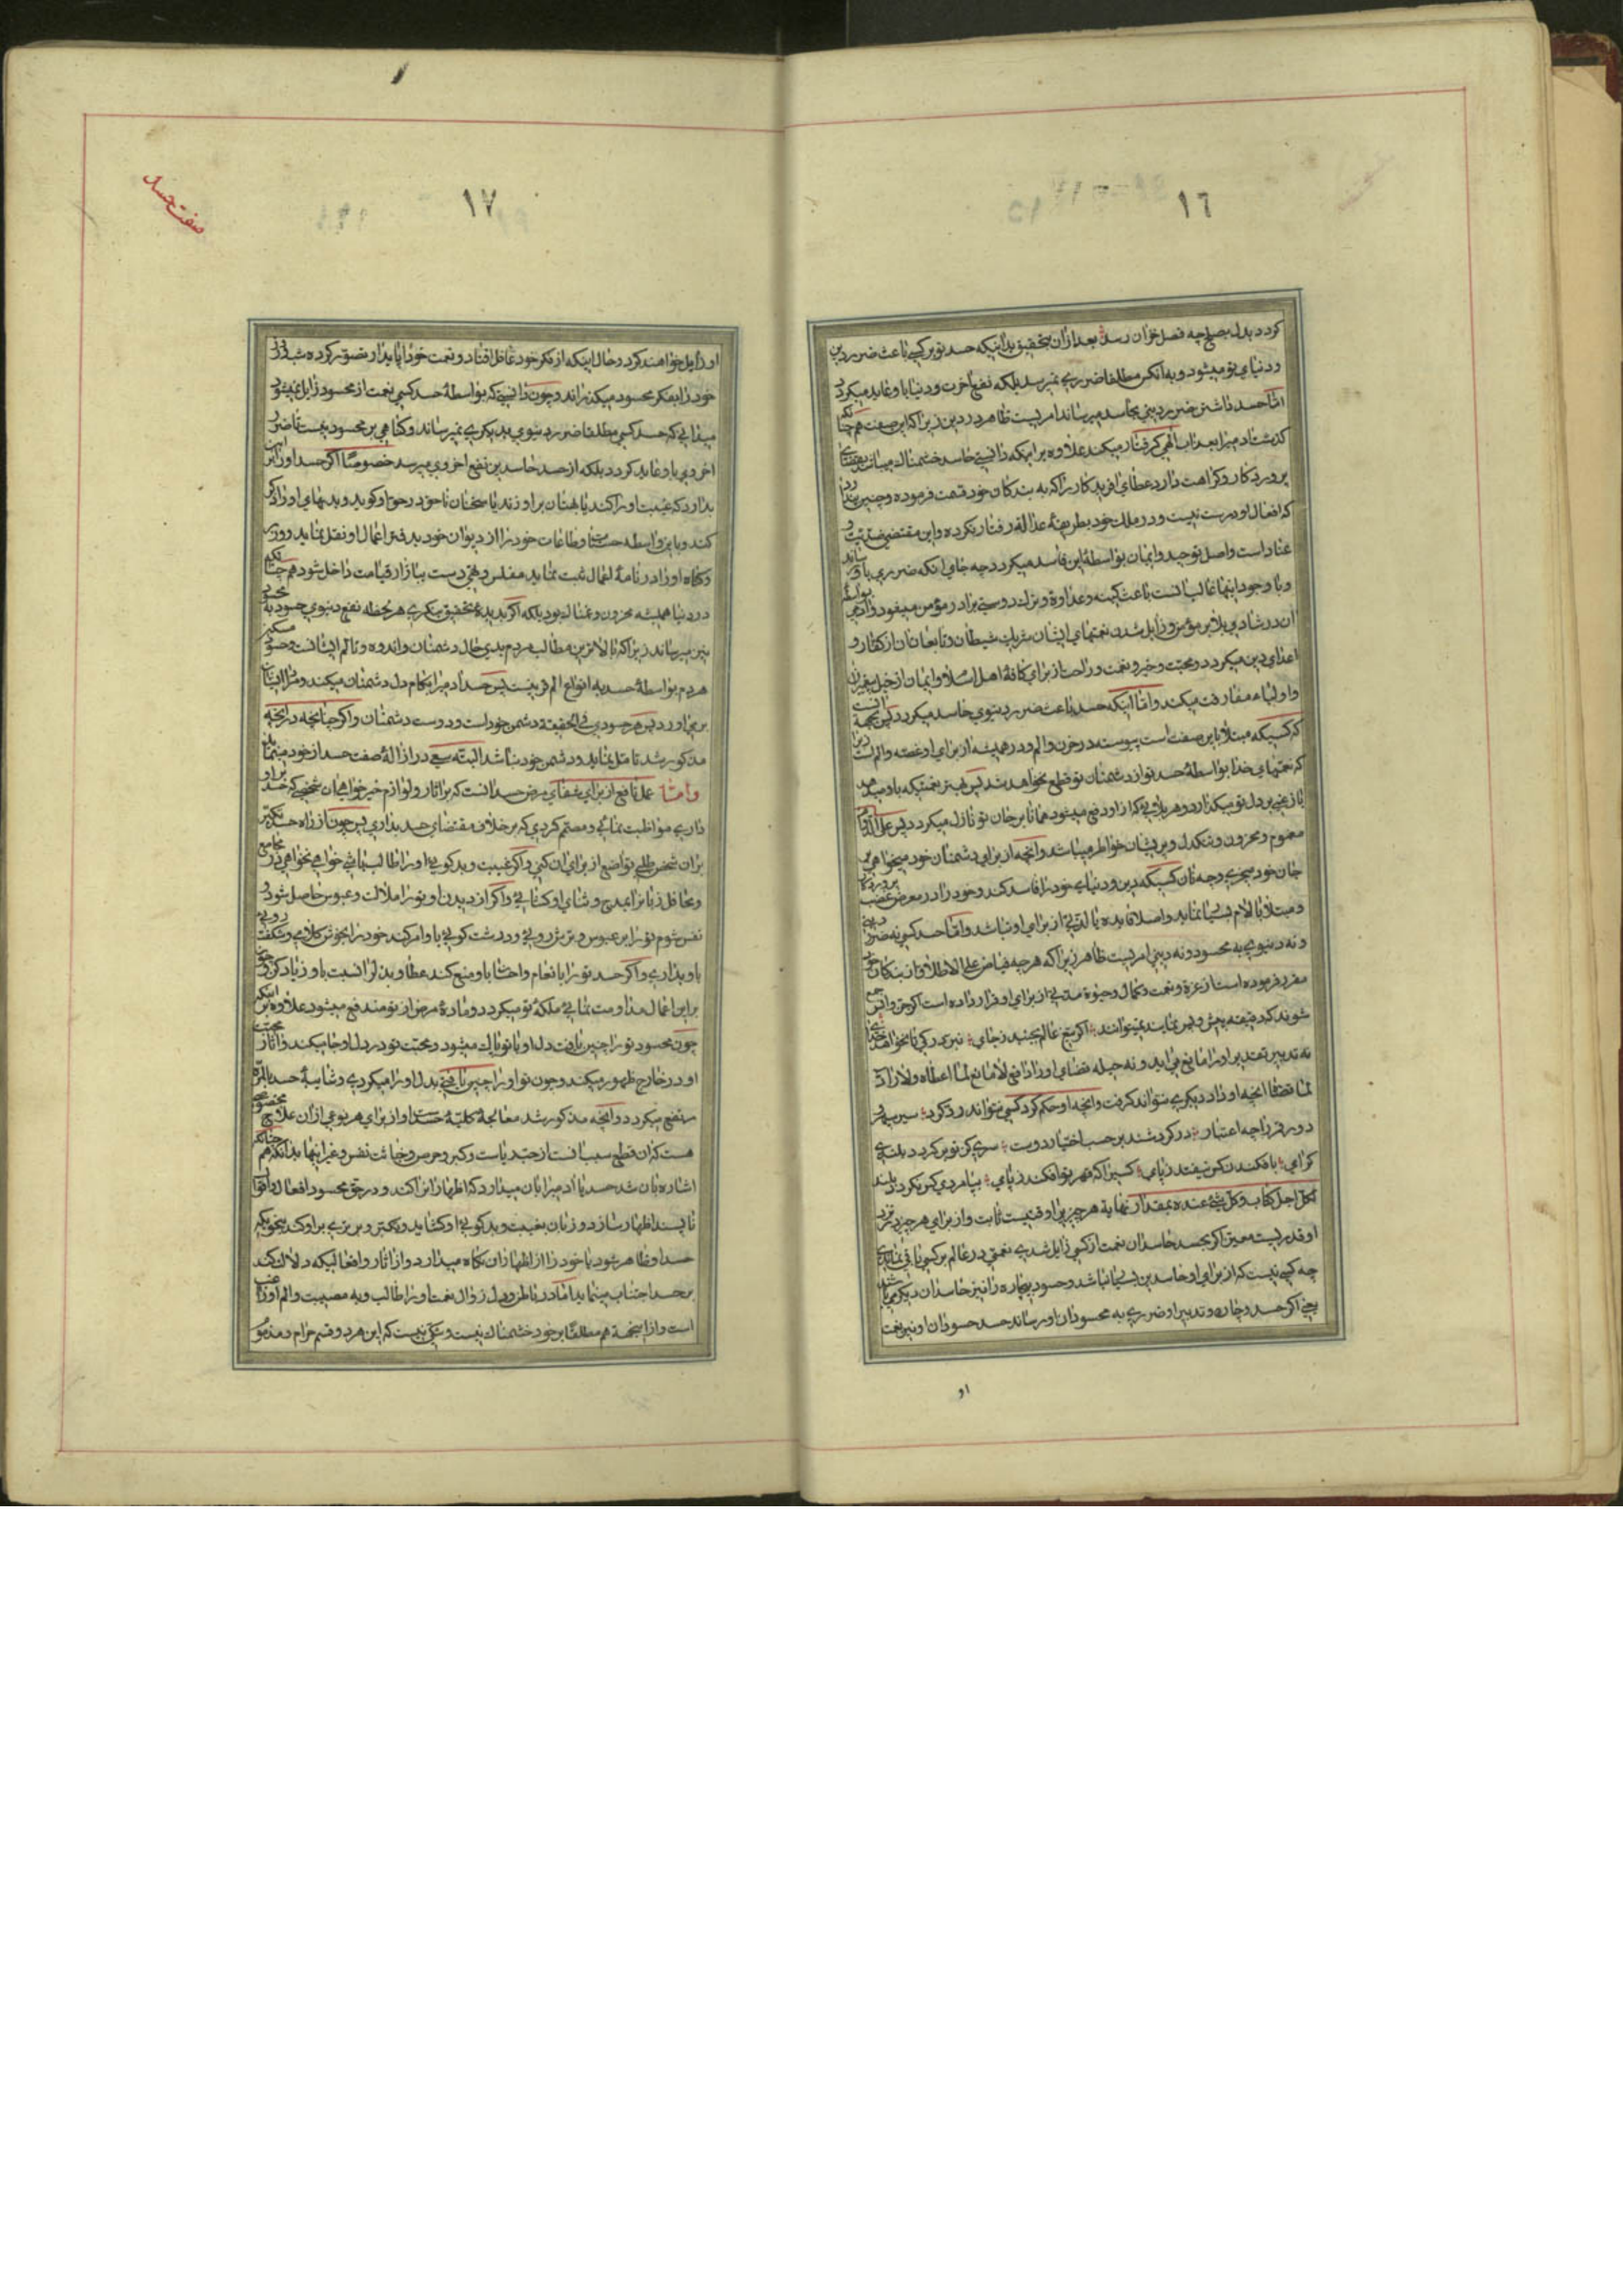 ١٦
گردد بدل بصلح چه فصل خزان رسد بعد از ان بتحقیق بدانیکه حسد تو بر کسی باعث ضرر دین
و دنیای تو میشود و به انکس مطلقا ضرری نمیرسد بلکه نفع اخرت و دنیا باو عاید میگردد
امّا حسد داشتن ضرر دینی بحاسد میرساند امریست ظاهر در دین زیرا که این صفت هم چنانکه
گذشت ادمیرا بعذاب الهی گرفتار میکند علاوه بر اینکه دانستی حاسد خشمناک میباشد بقضای
پروردگار و کراهت دارد عطای افریدگار را که به بندگان خود قسمت فرموده و چنین میداند
که افعال او درست نیست و در ملک خود بطریقهٔ عدالة رفتار نکرده و این مقتضی ضدّیّت و
عناد است و اصل توحید و ایمان بواسطهٔ این فاسد میگردد چه جای انکه ضرری باو رساند
و با وجود اینها غالب انست باعث کینه و عداوة و ترک دوستی برادر مؤمن میشود و ادمی بواسطهٔ
ان در شادی بلای مؤمن و زایل شدن نعمتهای ایشان شریک شیطان و تابعان ان از کفّار و
اعدای دین میگردد و محبّت و خیر و نعمت و راحت از برای کافّهٔ اهل اسلام و ایمان از خیل پیغمبران
و اولیاء مفارقت میکند و امّا اینکه حسد باعث ضرر دنیوی حاسد میگردد پس بجهة انست
که کسیکه مبتلا باین صفت است پیوسته در حزن و الم و در همیشه از برای او غصّه و الم است زیرا
که نعمتهای خدا بواسطهٔ حسد تو از دشمنان تو قطع نخواهد شد پس هر نعمتیکه باو میرسد
بار غمی بر دل تو میگذارد و هر بلائی که از او دفع میشود همانا بر جان تو نازل میگردد پس علی الدّوام
مغموم و محزون و تنگدل و پریشان خواطر میباشد و انچه از برای دشمنان خود میخواهی بر
جان خود میخری و چه نادان کسیکه دین و دنیای خود را فاسد کند و خود را در معرض غضب پروردگار
و مبتلا بالام بسیار نماید و اصلا فایده یا لذّتی از برای او نباشد و امّا حسد گونه ضرر دینی
و نه دنیوی به محسود و نه دینی امریست ظاهر زیرا که هر چه فیّاض علی الاطلاق از بندگان خود
مقرّر فرموده است از عزّة و نعمت و کمال و حیوة مدّتی از برای او قرار داده است اگر جنّ و انس جمع
شوند که دقیقه پیش و پس نمایند نمیتوانند اگر تیغ عالم بجنبد ز جای نبرّد رگی تا نخواهد خدای
نه تدبیر تقدیر او را مانع می اید و نه حیله قضای او را دافع لا مانع لما اعطاه و لا رادّ
لما قضا انچه او داد دیگری نتواند گرفت و انچه او حکم کرد کسی نتواند رد کرد سپر بر
دور قمر را چه اعتبار در گردشند بر حسب اختیار دوست سری کز تو گردد بلندی
گرای بافکندن کس نیفتد ز پای کسیرا که قهر تو افکند ز پای بپامردی کس نگردد بلند
لکلّ اجل کتاب و کلّ شیء عنده بمقدار نهایة هر چیزیرا وقتیست ثابت و از برای هر چیز نزد
او قدریست معین اگر بحسد حاسدان نعمت از کسی زایل شدی نعمتی در عالم بر کسی باقی نماندی
چه کسی نیست که از برای او حاسدین بسیار نباشد و حسود بیچاره را نیز حاسدان دیگر میباشند
یعنی اگر حسد و چاره و تدبیر او ضرری به محسودان او رساند حسد حسودان او نیز نعمت
او
١٧
صفت حسد
او زایل خواهند کرد و حال اینکه از فکر خود غافل افتاد و نعمت خود را پایدار تصوّر کرده شب و روز
خود را بفکر محسود میگذراند و چون دانستی که بواسطهٔ حسد کسی نعمت از محسود زایل نمیشود
میدانی که حسد کسی مطلقا ضرر دنیوی بدیگری نمیرساند و گناهی بر محسود نیست تا ضرر
اخروی باو عاید گردد بلکه از حسد حاسد بن نفع اخروی میرسد خصوصًا اگر حسد او را بر این
بدارد که غیبت او را کند یا بهتان بر او زند یا سخنان ناحق در حق او گوید و بدیهای او را ذکر
کند و باین واسطه حسنات و طاعات خود را از دیوان خود بدفتر اعمال او نقل نماید و وزر
و گناه او را در نامهٔ اعمال ثبت نماید مفلس و تهی دست ببازار قیامت داخل شود هم چنانکه
در دنیا همیشه محزون و غمناک بود بلکه اگر بدیدهٔ تحقیق بنگری هر لحظه نفع دنیوی حسود به محسود
نیز میرساند زیرا که بالاترین مطالب مردم بدی حال دشمنان و اندوه و تالّم ایشانست و حسود مسکین
هر دم بواسطهٔ حسد به انواع الم قرینست پس حسد ادمیرا بکام دل دشمنان میکند و مراد ایشان
بر می اورد پس هر حسودی فی الحقیقة دشمن خود است و دوست دشمنان و اگر چنانچه در انچه
مذکور شد تامّل نماید و دشمن خود نباشد البتّه سعی در ازالهٔ صفت حسد از خود مینماید
و امّا عمل نافع از برای شفای مرض حسد انست که بر اثار و لوازم خیر خواهی ان شخصی که حسد بر او
داری مواظبت نمائی و مصمّم گردی که بر خلاف مقتضای حسد بداری پس چون از راه حسد تکبّر
بر ان شخص طلبی تواضع از برای ان کنی و اگر غیبت و بدگوئی او را طالب باشی خواهی نخواهی در مجامع
و محافل زبانرا بمدح و ثنای او گشائی و اگر از دیدن او تو را ملالت و عبوس حاصل شود
نفس شوم تو را بر عبوس و ترش روئی و درشت گوئی باو امر کند خود را بخوش کلامی و شکفته روئی
باو بداری و اگر حسد تو را بانعام و احسان باو منع کند عطا و بذل را نسبت باو زیاد کن و چون
بر این اعمال مداومت نمائی ملکهٔ تو میگردد و مادهٔ مرض از تو مند فع میشود علاوه بر اینکه
چون محسود تو را چنین یافت دل او با تو پاک میشود و محبت تو در دل او جا میکند و اثار محبّت
او در خارج ظهور میکند و چون تو او را چنین یافتی بدل او را میگردی و شایبهٔ حسد بالمرّة
مرتفع میگردد و انچه مذکور شد معالجهٔ کلیّهٔ حسد است و از برای هر نوعی از ان علاج مخصوصی
هست که ان قطع سبب انست از حبّ ریاست و کبر و حرص و خباثت نفس و غیر اینها بدانکه هم چنانکه
اشاره بان شد حسد یا ادمیرا بان میدارد که اظهار انرا کند و در حق محسود افعال و اقوال
ناپسند اظهار سازد و زبان بغیبت و بدگوئی او گشاید و تکبّر و برتری بر او کند بنحویکه
حسد او ظاهر شود یا خود را از اظهار ان نگاه میدارد و از اثار و افعالیکه دلالت کند
بر حسد اجتناب مینماید امّا در باطن و دل زوال نعمت او را طالب و به مصیبت و الم او راغب
است و از اینجهة هم مطلقًا بر خود خشمناک نیست و شکّی نیست که این هر دو قسم حرام و مذموم